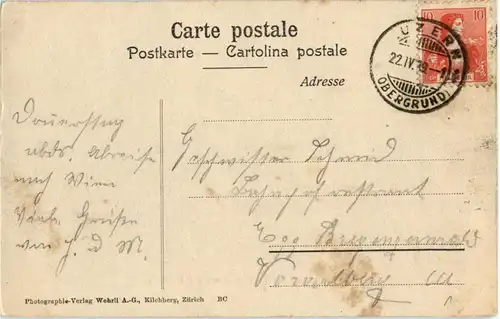 Carte postale
Postkarte — Cartolina postale
Adresse
10 10
LUZERN
22.IV.19
OBERGRUND
Donnerstag
abds. Abreise
nach Wien
Viele Grüsse
von J. d M.
Geschwister Schmid
Bahnhofrestaurant
Egg Bregenzerwald
Vorarlberg
Photographie-Verlag Wehrli A.-G., Kilchberg, Zürich BC